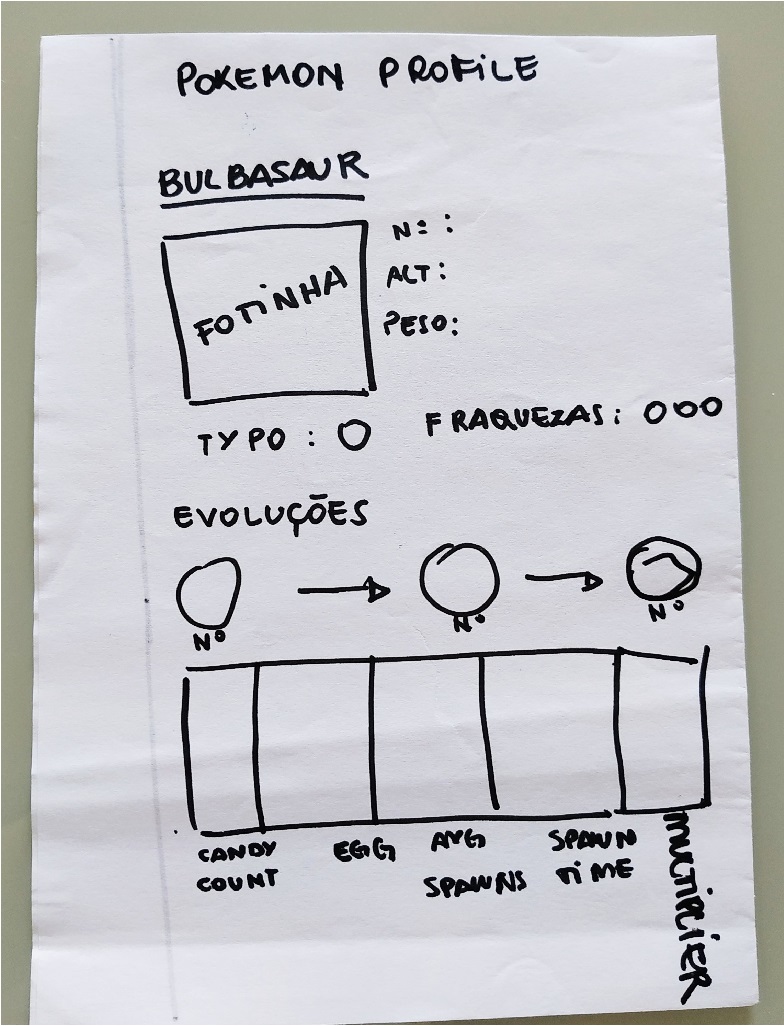 POKEMON PROFILE
BULBASAUR
Nº:
FOTINHA
ALT:
PESO:
TYPO: O
FRAQUEZAS: OOO
EVOLUÇÕES
Nº
Nº
Nº
CANDY COUNT
EGG
AVG SPAWNS
SPAWN TIME
MULTIPLIER